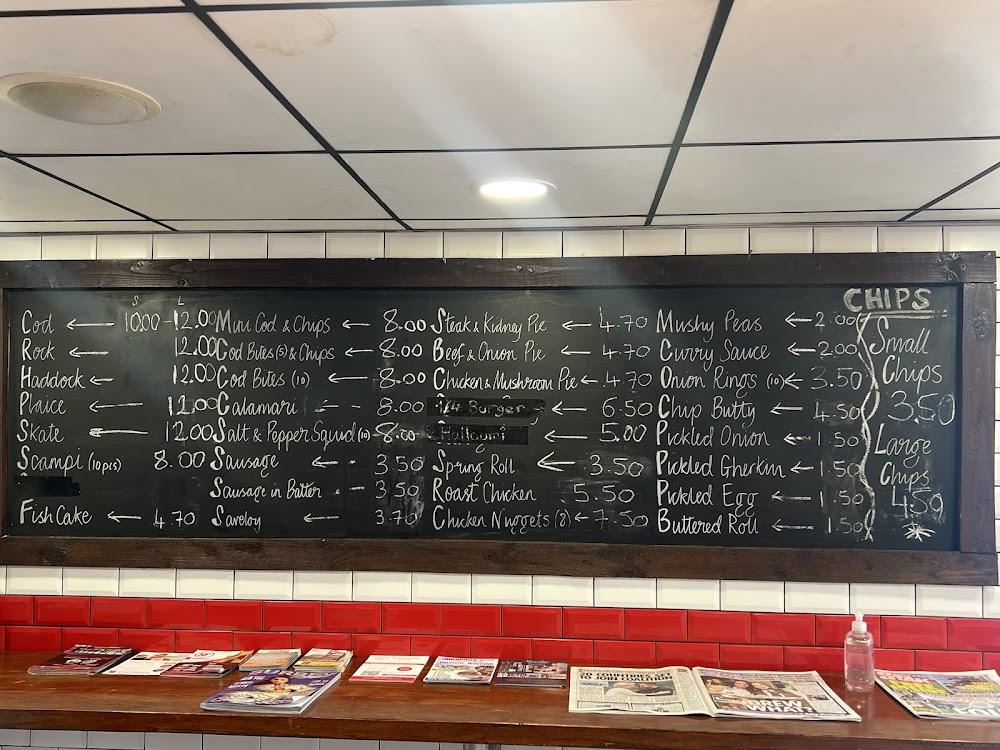 S L
Cod 10.00 - 12.00
Rock 12.00
Haddock 12.00
Plaice 12.00
Skate 12.00
Scampi (10pcs) 8.00
Fish Cake 4.70
Mini Cod & Chips 8.00
Cod Bites (5) & Chips 8.00
Cod Bites (10) 8.00
Calamari 8.00
Salt & Pepper Squid (10) 8.00
Sausage 3.50
Sausage in Batter 3.50
Saveloy 3.70
Steak & Kidney Pie 4.70
Beef & Onion Pie 4.70
Chicken & Mushroom Pie 4.70
1/4 Burger 6.50
Halloumi 5.00
Spring Roll 3.50
Roast Chicken 5.50
Chicken Nuggets (8) 7.50
Mushy Peas 2.00
Curry Sauce 2.00
Onion Rings (10) 3.50
Chip Butty 4.50
Pickled Onion 1.50
Pickled Gherkin 1.50
Pickled Egg 1.50
Buttered Roll 1.50
CHIPS
Small
Chips
3.50
Large
Chips
4.50
TO JOIN COALITION
BREW
WHAT?